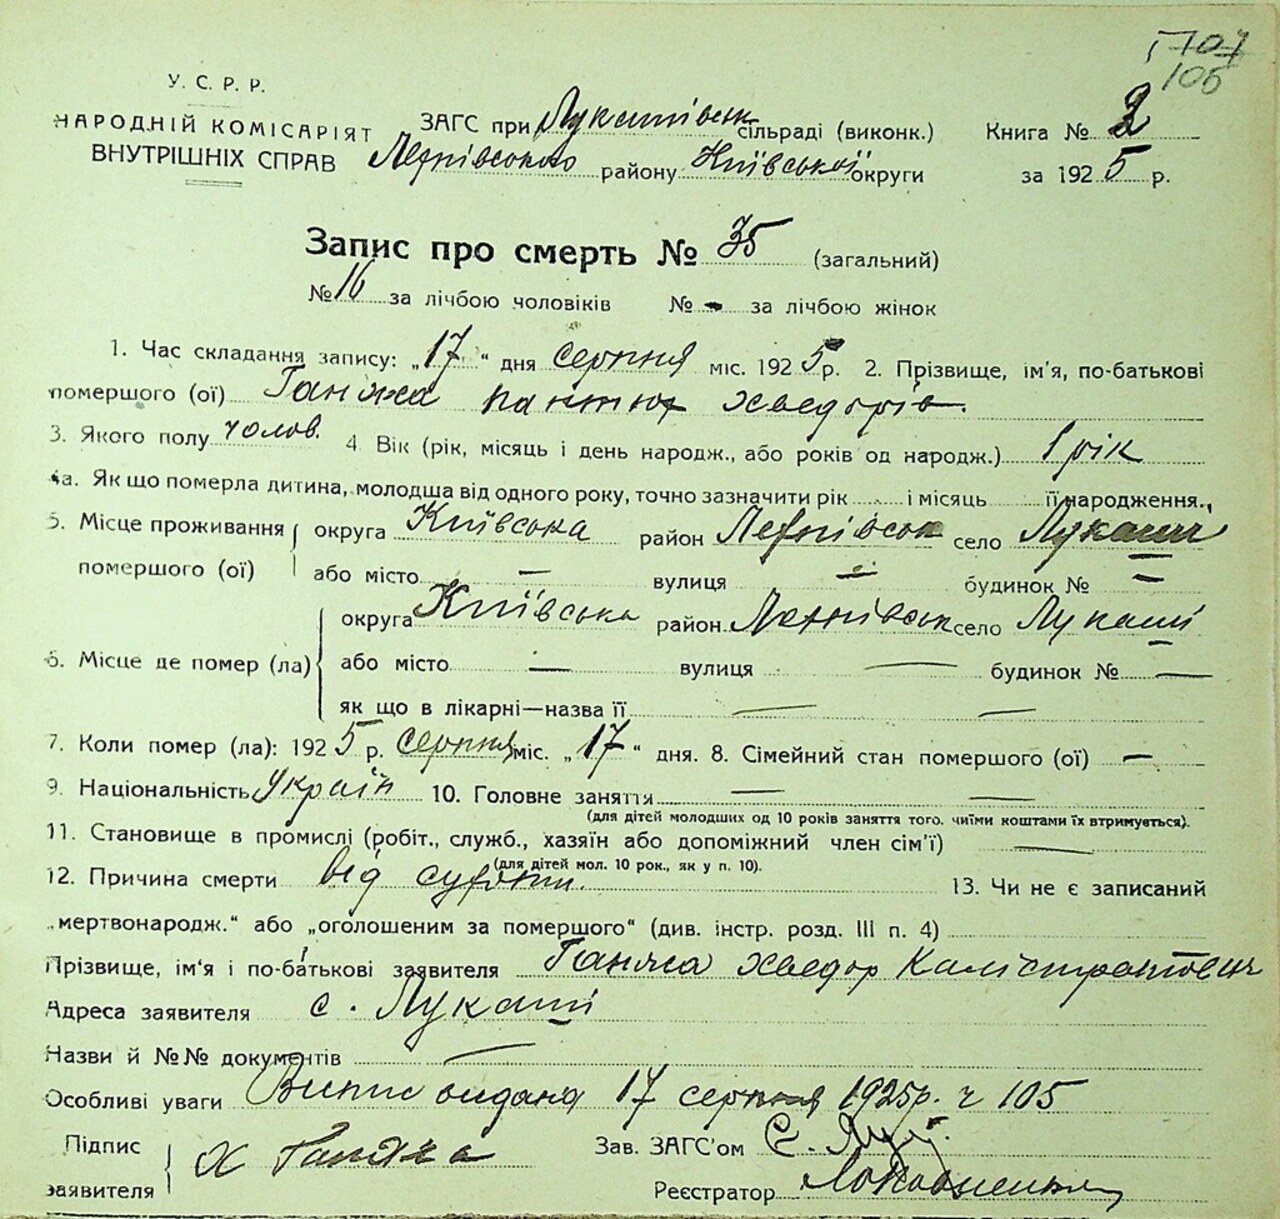 107
105
У. С. Р. Р.
НАРОДНІЙ КОМІСАРІЯТ
ВНУТРІШНІХ СПРАВ
ЗАГС при Лукашівськ сільраді (виконк.) Книга № 2
району Київської округи за 1925 р.
Запис про смерть № 35 (загальний)
№ 16 за лічбою чоловіків № - за лічбою жінок
1. Час складання запису: „17“ дня серпня міс. 1925 р. 2. Прізвище, ім'я, по-батькові
помершого (ої) Ганжа Пантюх Хведорів.
3. Якого полу чолов. 4. Вік (рік, місяць і день народж., або років од народж.) 1 рік
4а. Як що померла дитина, молодша від одного року, точно зазначити рік і місяць її народження.
5. Місце проживання округа Київська район село Лукаші
помершого (ої) або місто — вулиця — будинок № —
округа Київська район село Лукаші
6. Місце де помер (ла) або місто — вулиця — будинок № —
як що в лікарні—назва її — —
7. Коли помер (ла): 1925 р. серпня міс. „17“ дня. 8. Сімейний стан помершого (ої) —
9. Національність Україн 10. Головне заняття — —
(для дітей молодших од 10 років заняття того, чиїми коштами їх втримується).
11. Становище в промислі (робіт., служб., хазяїн або допоміжний член сім'ї) —
(для дітей мол. 10 рок., як у п. 10).
12. Причина смерти від 13. Чи не є записаний
„мертвонародж.“ або „оголошеним за помершого“ (див. інстр. розд. III п. 4)
Прізвище, ім'я і по-батькові заявителя Ганжа Хведор Калістратович
Адреса заявителя с. Лукаші
Назви й №№ документів —
Особливі уваги Випис видана 17 серпня 1925 р. ч 105
Підпис
заявителя Х Ганжа
Зав. ЗАГС'ом
Реєстратор